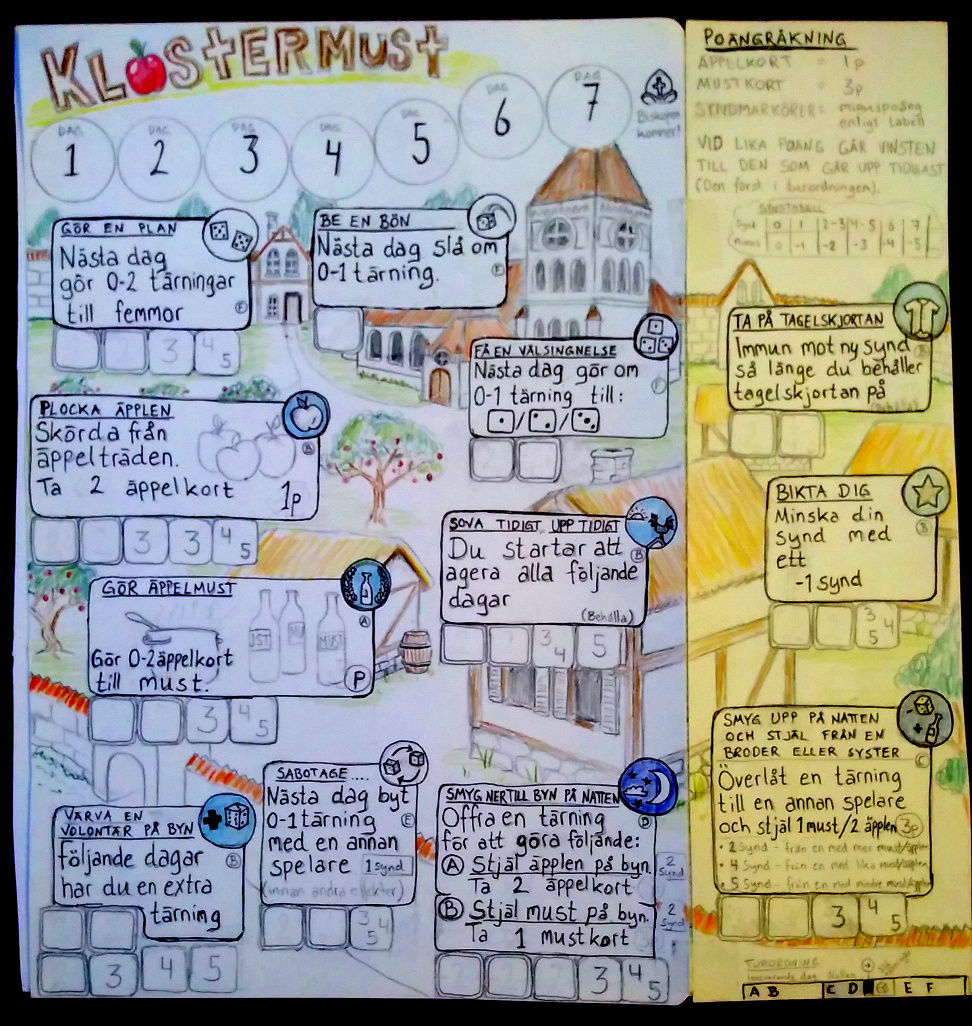 KLOSTERMUST
DAG 1
DAG 2
DAG 3
DAG 4
DAG 5
DAG 6
DAG 7
Biskopen
kommer!
GÖR EN PLAN
Nästa dag
gör 0-2 tärningar
till femmor
F
3 4 5
BE EN BÖN
Nästa dag slå om
0-1 tärning.
F
FÅ EN VÄLSINGNELSE
Nästa dag gör om
0-1 tärning till:
/ /
F
PLOCKA ÄPPLEN
Skörda från
äppelträden.
Ta 2 äppelkort
1p
B
3 3 4 5
SOVA TIDIGT, UPP TIDIGT
Du startar att
agera alla följande
dagar
(Behålla)
B
3 4 5
GÖR ÄPPELMUST
MUST
Gör 0-2 äppelkort
till must.
A
P
3 4 5
VÄRVA EN
VOLONTÄR PÅ BYN
följande dagar
har du en extra
tärning
B
3 4 5
SABOTAGE....
Nästa dag byt
0-1 tärning
med en annan
spelare 1 synd
(innan andra effekter)
E
3 4 5
SMYG NER TILL BYN PÅ NATTEN
Offra en tärning
för att göra följande:
A Stjäl äpplen på byn.
Ta 2 äppelkort
B Stjäl must på byn.
Ta 1 mustkort
D
2 Synd
2 Synd
3 4 5
POÄNGRÄKNING
ÄPPELKORT = 1p
MUSTKORT = 3p
SYNDMARKÖRER = minuspoäng
enligt tabell
VID LIKA POÄNG GÅR VINSTEN
TILL DEN SOM GÅR UPP TIDIGAST
(Den först i turordningen).
SYNDTABELL
Synd 0 1 2-3 4-5 6 7
Minus 0 -1 -2 -3 -4 -5
TA PÅ TAGELSKJORTAN
Immun mot ny synd
så länge du behåller
tagelskjortan på
(Behålla)
B
BIKTA DIG
Minska din
synd med
ett
-1 synd
B
3 4 5
SMYG UPP PÅ NATTEN
OCH STJÄL FRÅN EN
BRODER ELLER SYSTER
Överlåt en tärning
till en annan spelare
och stjäl 1 must/2 äpplen 3p
• 2 Synd - från en med mer must/äpplen
• 4 Synd - från en med lika must/äpplen
• 5 Synd - från en med mindre must/äpplen
C
3 4 5
TURORDNING
A B C D E F